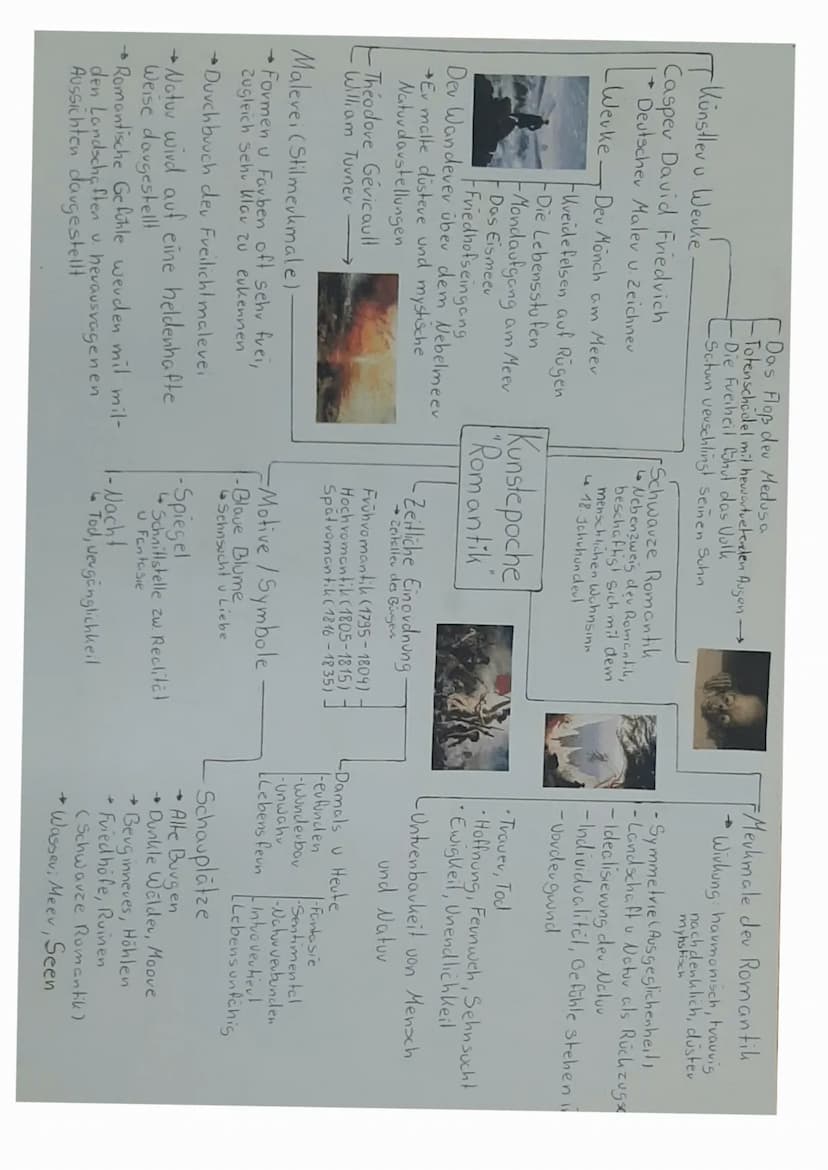 Kunstepoche
"Romantik"
Künstler u Werke
Casper David Friedrich
→ Deutscher Maler u Zeichner
Werke
Der Mönch am Meer
Kreidefelsen auf Rügen
Die Lebensstufen
Mondaufgang am Meer
Das Eismeer
Friedhofseingang
Der Wanderer über dem Nebelmeer
→ Er malte düstere und mystische
Naturdarstellungen
Théodore Géricault
William Turner →
Das Floß der Medusa
Totenschädel mit hervortretenden Augen →
Die Freiheit führt das Volk
Saturn verschlingt seinen Sohn
Malerei (Stilmerkmale)
→ Formen u Farben oft sehr frei,
zugleich sehr klar zu erkennen
→ Durchbruch der Freilichtmalerei
→ Natur wird auf eine heldenhafte
Weise dargestellt
→ Romantische Gefühle werden mit mil-
den Landschaften u herausragenen
Aussichten dargestellt
Schwarze Romantik
↳ Nebenzweig der Romantik,
beschäftigt sich mit dem
menschlichen Wahnsinn
↳ 18 Jahrhundert
Zeitliche Einordnung
→ Zeitalter des Bürgers
Frühromantik (1795-1804)
Hochromantik (1805-1815)
Spätromantik (1816-1835)
Damals u Heute
-erfunden
-Wunderbar
-unwahr
Lebensfern
-Fantasie
-Sentimental
-Naturverbunden
-Introvertiert
Lebensunfähig
Motive/Symbole
-Blaue Blume
↳ Sehnsucht u Liebe
-Spiegel
↳ Schnittstelle zw Realität
u Fantasie
-Nacht
↳ Tod, Vergänglichkeit
Schauplätze
→ Alte Burgen
→ Dunkle Wälder, Moore
→ Berginneres, Höhlen
→ Friedhöfe, Ruinen
(Schwarze Romantik)
→ Wasser; Meer, Seen
Merkmale der Romantik
→ Wirkung: harmonisch, traurig
nachdenklich, düster
mystisch
- Symmetrie (Ausgeglichenheit)
- Landschaft u Natur als
- Idealisierung der Natur
- Individualität, Gefühle stehen
- Vordergrund
• Trauer, Tod
• Hoffnung, Fernweh, Sehnsucht
• Ewigkeit, Unendlichkeit
Untrennbarkeit von Mensch
und Natur